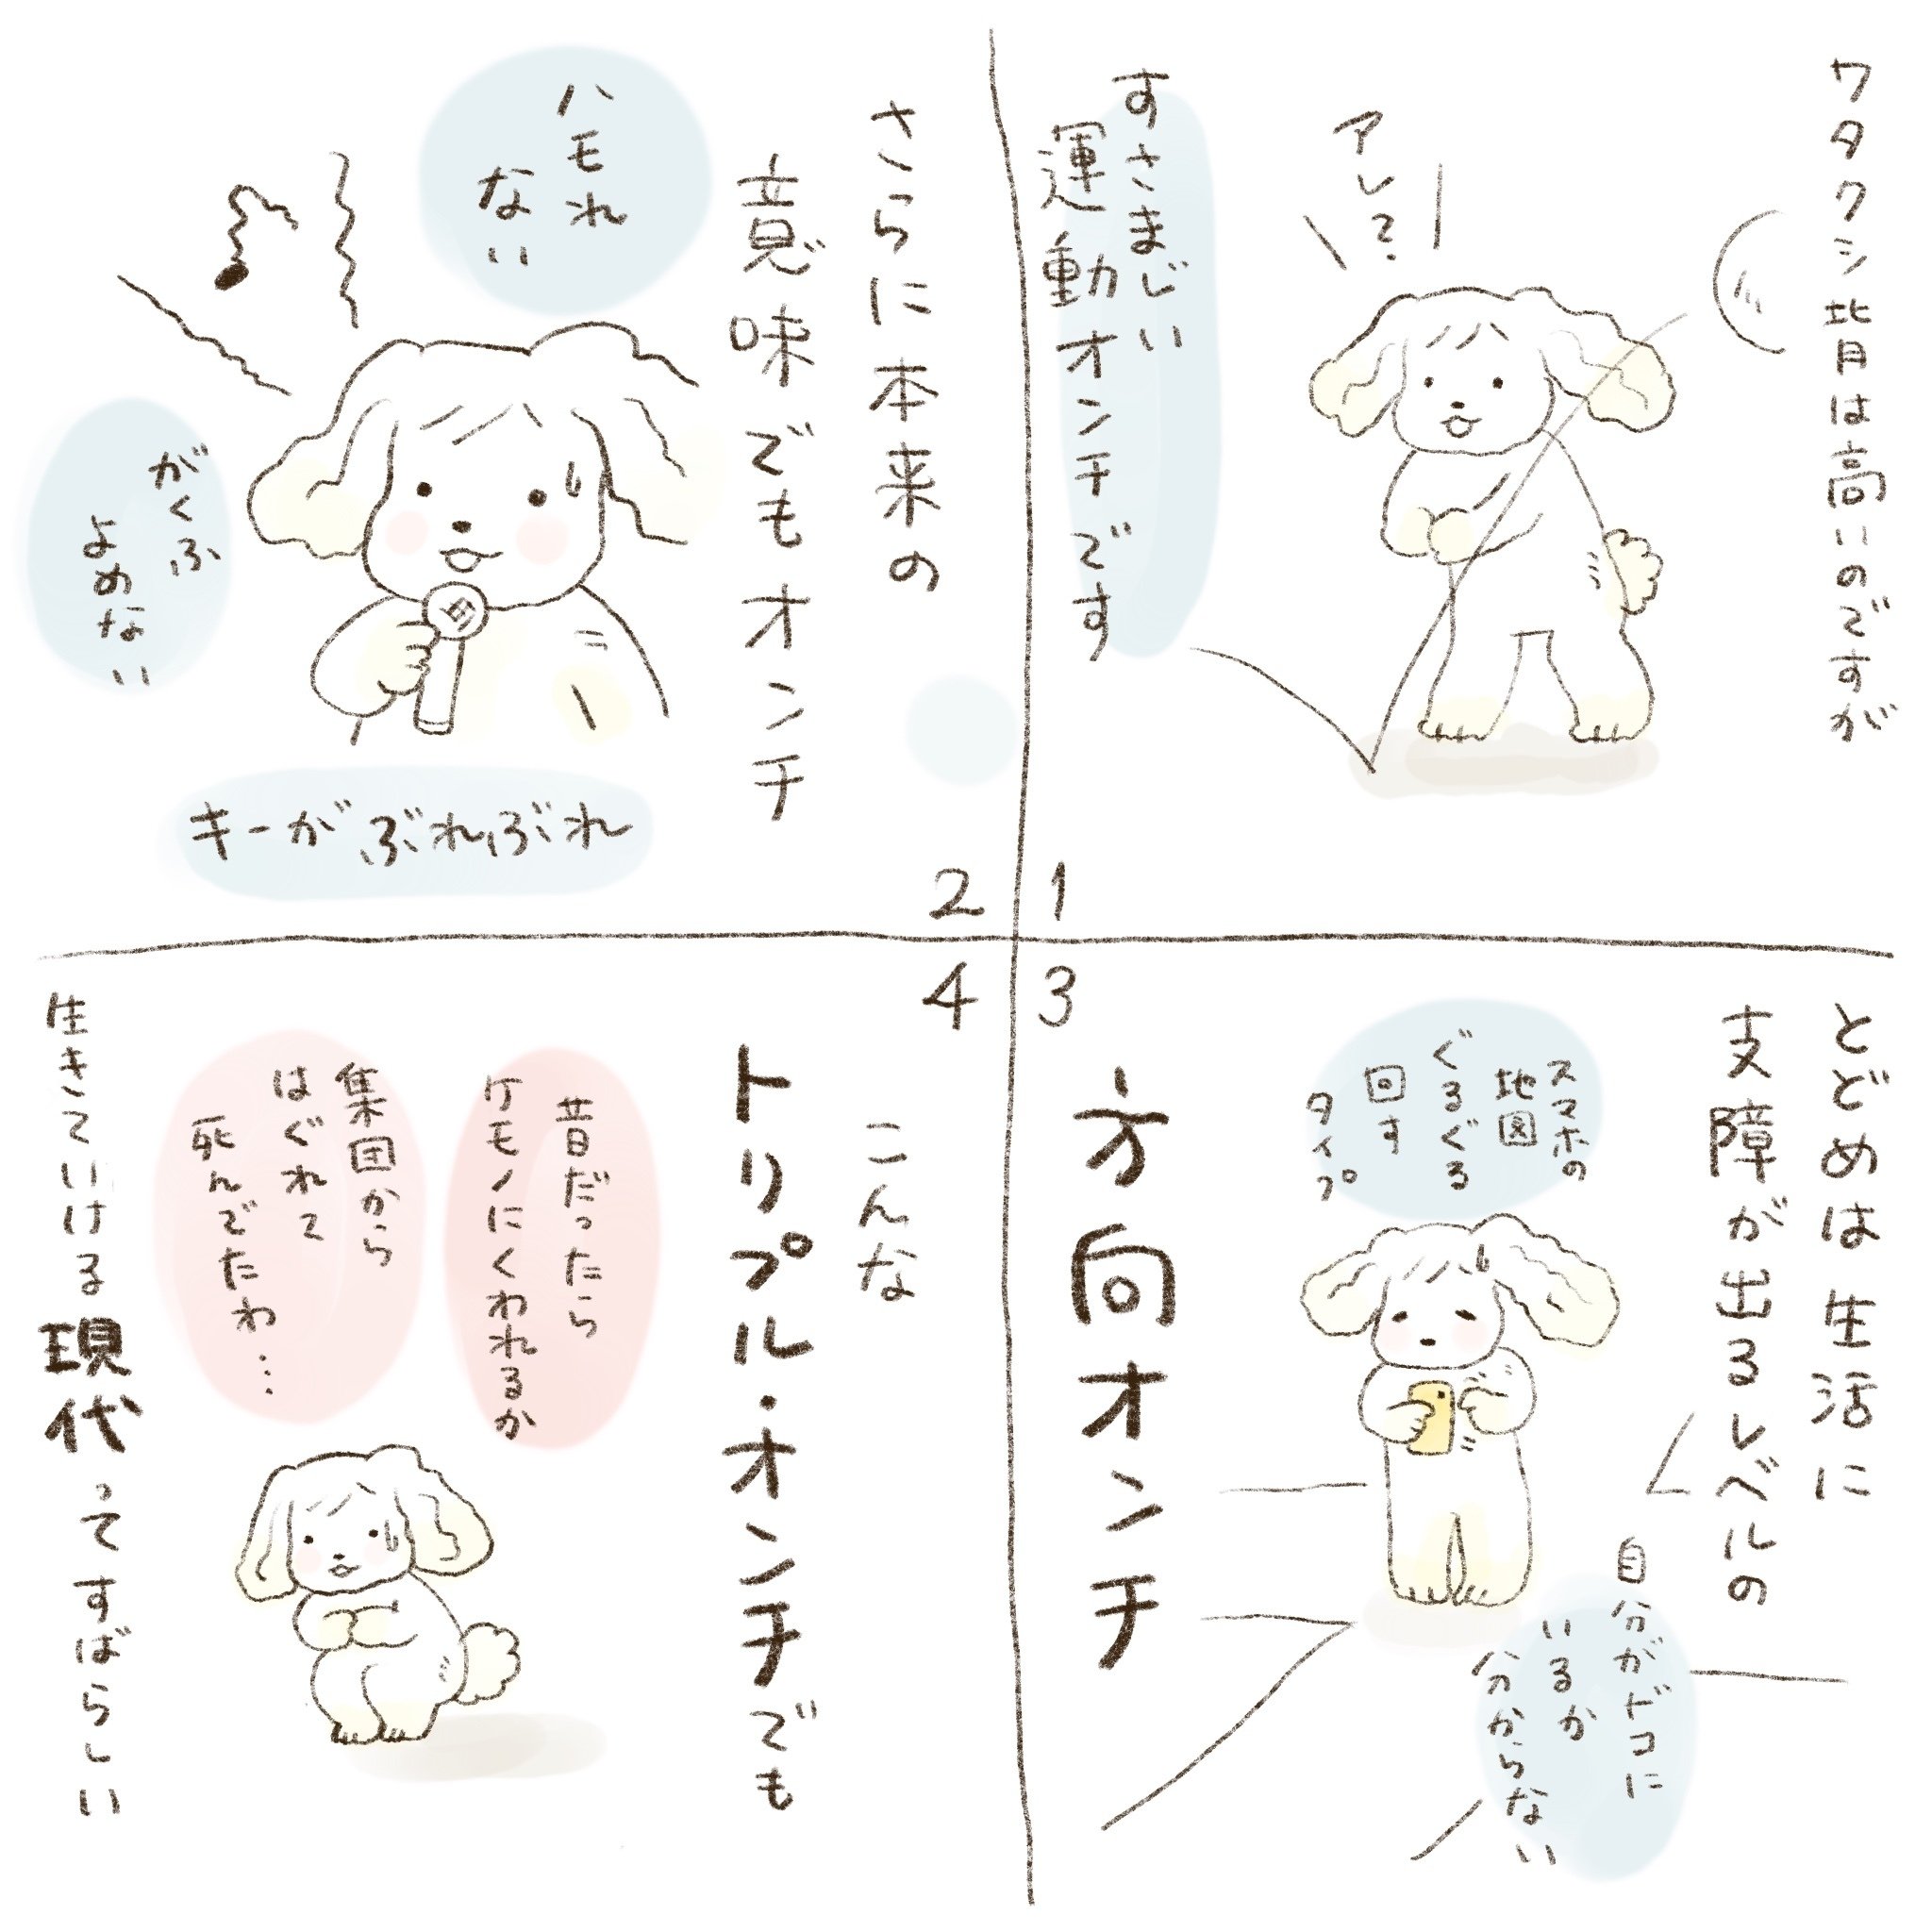 ワタクシ背は高いのですが
アレ?
すさまじい
運動オンチです
1
さらに本来の
意味でもオンチ
ハモれ
ない
がくふ
よめない
キーがぶれぶれ
2
とどめは生活に
支障が出るレベルの
スマホの
地図
ぐるぐる
回す
タイプ
自分がドコに
いるか
分からない
方向オンチ
3
こんな
トリプル・オンチでも
昔だったら
ケモノにくわれるか
集団から
はぐれて
死んでたわ…
生きていける現代ってすばらしい
4